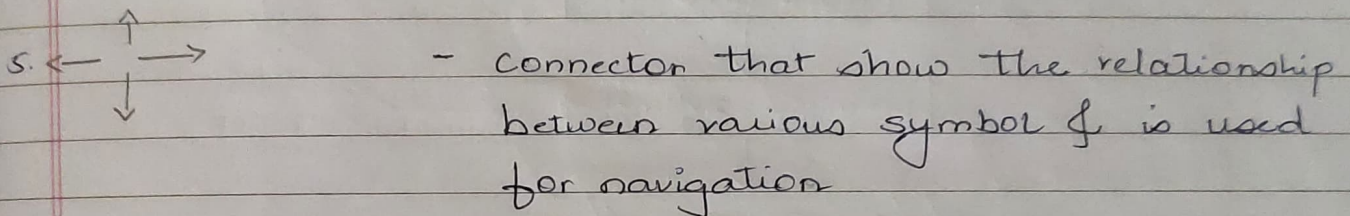 5. ← ↑ → ↓ - connector that show the relationship
between various symbol & is used
for navigation